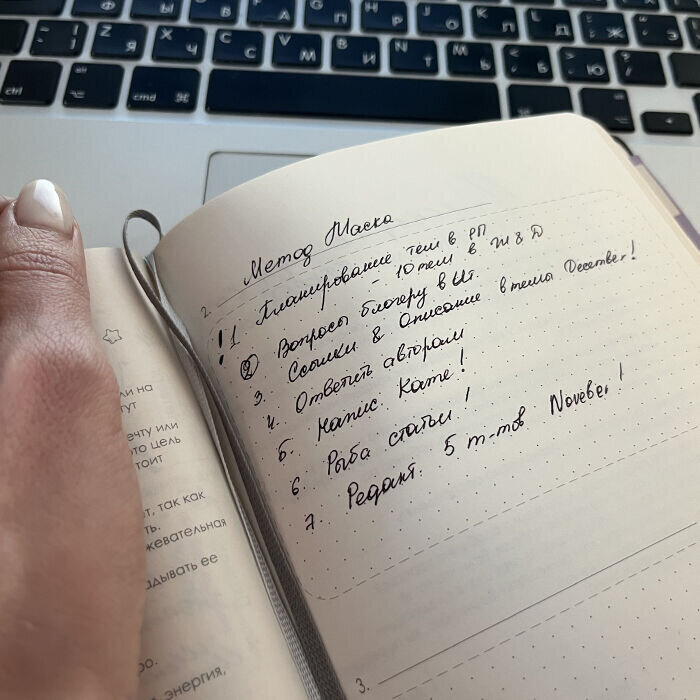 2. Метод Маска
1 Планирование тем в РП
- 10 тем в
2 Вопросы блогеру
3. Ссылки & Описание в темы December!
4. Ответить авторам
5. Напис. Кате!
6. Рыба статьи!
7. Редакт. 5 т-тов Noveber!
3.
ли на
гут
ечту или
это цель
тоит
т, так как
ть.
жевательная
адывать ее
ро.
энергия,
ctrl
cmd
Z Я
X Ч
C С
V М
B И
N Т
M Ь